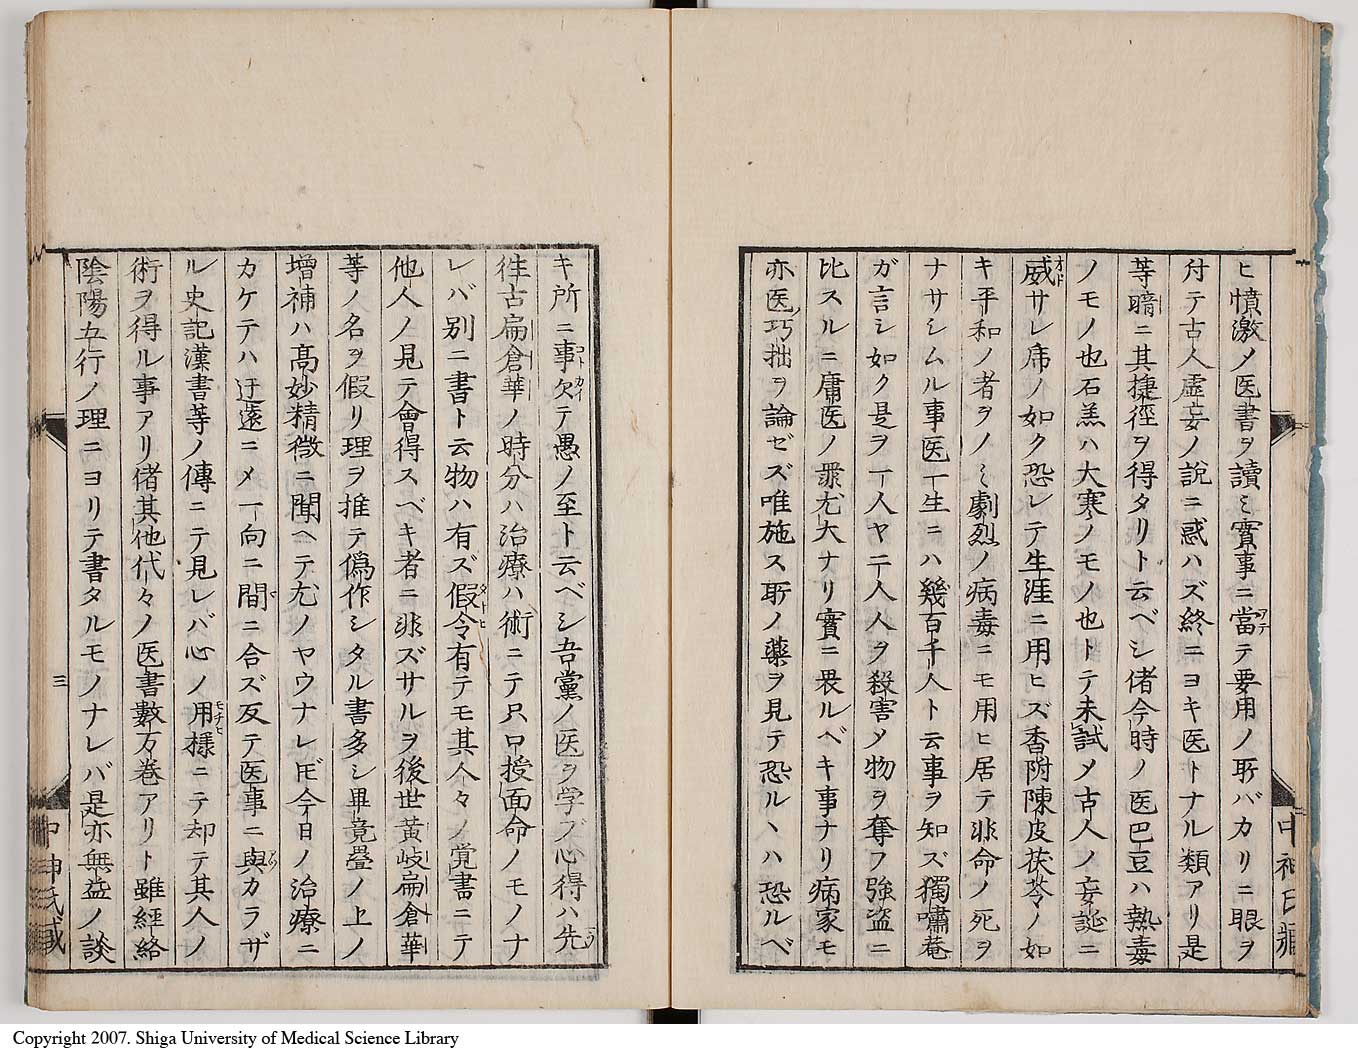 ヒ憤激ノ医書ヲ讀ミ實事ニ當テ要用ノ所バカリニ眼ヲ
付テ古人虚妄ノ説ニ惑ハズ終ニヨキ医トナル類アリ是
等暗ニ其捷徑ヲ得タリト云ベシ偖今時ノ医巴豆ハ熱毒
ノモノ也石羔ハ大寒ノモノ也トテ未試メ古人ノ妄誕ニ
威サレ席ノ如ク恐レテ生涯ニ用ヒズ香附陳皮茯苓ノ如
キ平和ノ者ヲノミ劇烈ノ病毒ニモ用ヒ居テ非命ノ死ヲ
ナサシムル事医一生ニハ幾百千人ト云事ヲ知ズ獨嘯菴
ガ言シ如ク是ヲ一人ヤ二人人ヲ殺害メ物ヲ奪フ強盗ニ
比スルニ庸医ノ罪尤大ナリ實ニ畏ルベキ事ナリ病家モ
亦医巧拙ヲ論ゼズ唯施ス所ノ藥ヲ見テ恐ルヽハ恐ルベ
中神氏藏
キ所ニ事欠テ愚ノ至ト云ベシ吾黨ノ医ヲ学ブ心得ハ先
徃古扁倉華ノ時分ハ治療ハ術ニテ只口授面命ノモノナ
レバ別ニ書ト云物ハ有ズ假令有テモ其人々ノ覚書ニテ
他人ノ見テ會得スベキ者ニ非ズサルヲ後世黄岐扁倉華
等ノ名ヲ假リ理ヲ推テ偽作シタル書多シ畢竟疊ノ上ノ
増補ハ高妙精微ニ聞ヘテ尤ノヤウナレ𪜈今日ノ治療ニ
カケテハ迂遠ニメ一向ニ間ニ合ズ反テ医事ニ與カラザ
ル史記漢書等ノ傳ニテ見レバ心ノ用様ニテ却テ其人ノ
術ヲ得ル事アリ偖其他代々ノ医書數万巻アリト雖經絡
陰陽五行ノ理ニヨリテ書タルモノナレバ是亦無益ノ談
三
中神氏藏
Copyright 2007. Shiga University of Medical Science Library